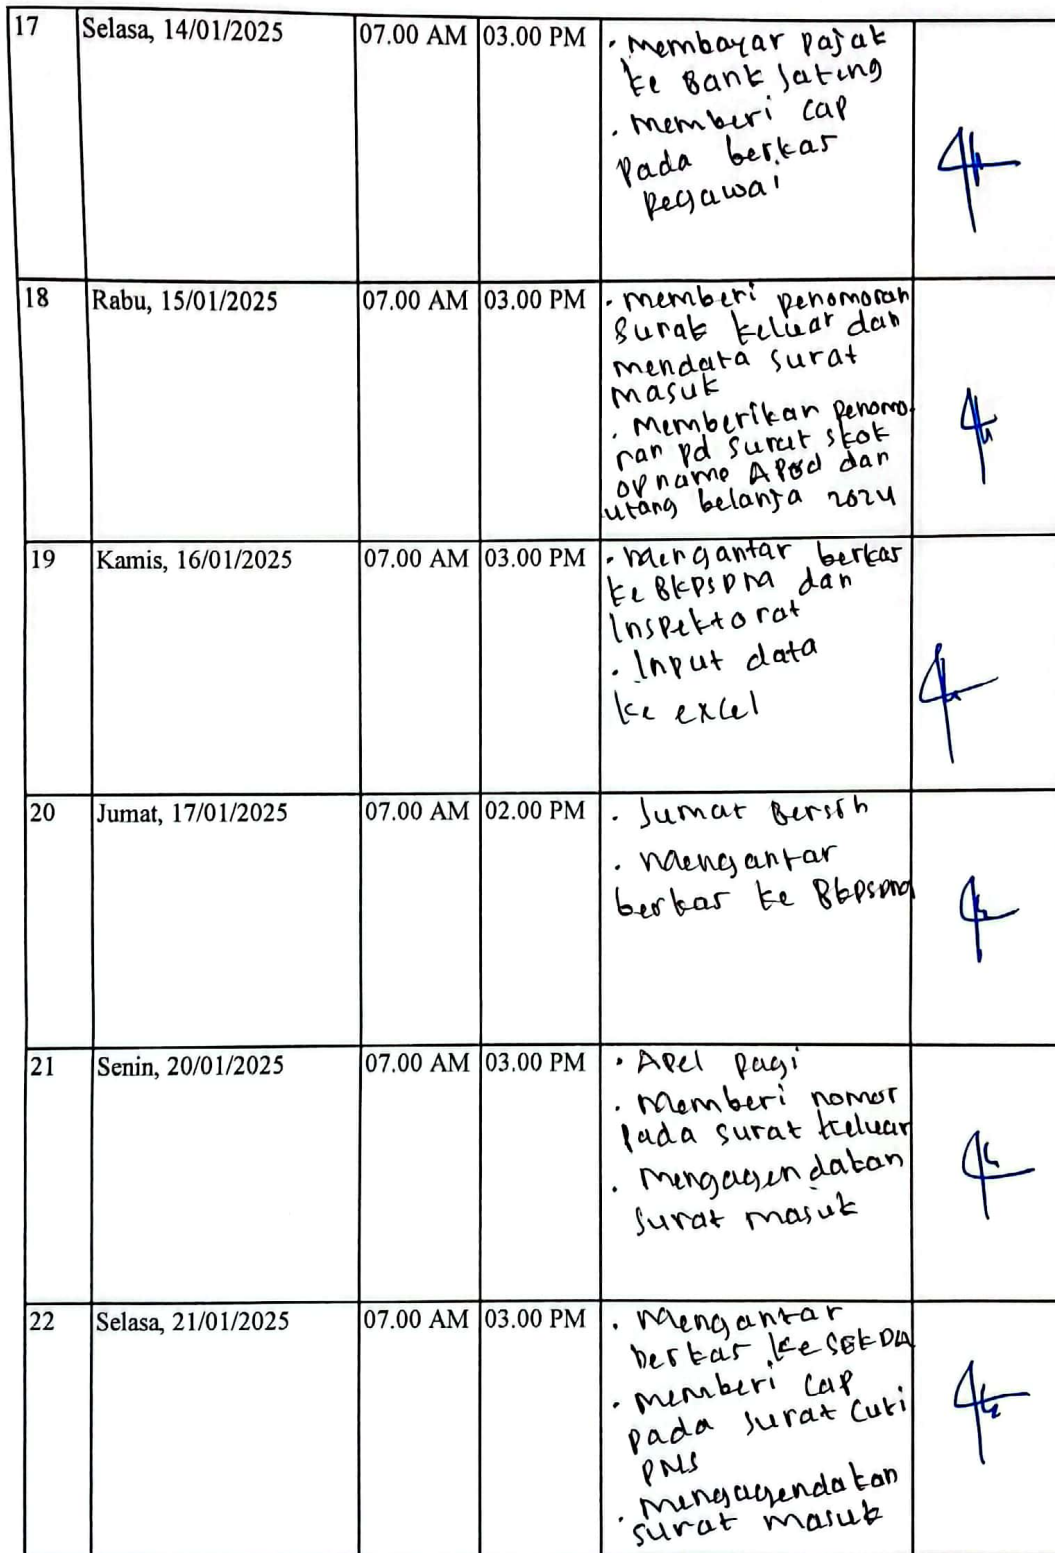 17 Selasa, 14/01/2025 07.00 AM 03.00 PM · Membayar pajak
ke Bank Jateng
· memberi cap
pada berkas
pegawai
18 Rabu, 15/01/2025 07.00 AM 03.00 PM · memberi penomoran
surat keluar dan
mendata surat
masuk
· Memberikan penomo
ran pd surat stok
opname APBD dan
utang belanja 2024
19 Kamis, 16/01/2025 07.00 AM 03.00 PM · Mengantar berkas
ke BKPSDM dan
Inspektorat
· Input data
ke excel
20 Jumat, 17/01/2025 07.00 AM 02.00 PM · Jumat Bersih
· Mengantar
berkas ke BKPSDM
21 Senin, 20/01/2025 07.00 AM 03.00 PM · Apel pagi
· Memberi nomor
pada surat keluar
· Mengagendakan
surat masuk
22 Selasa, 21/01/2025 07.00 AM 03.00 PM · Mengantar
berkas ke SEKDA
· memberi cap
pada surat cuti
PNS
· mengagendakan
surat masuk